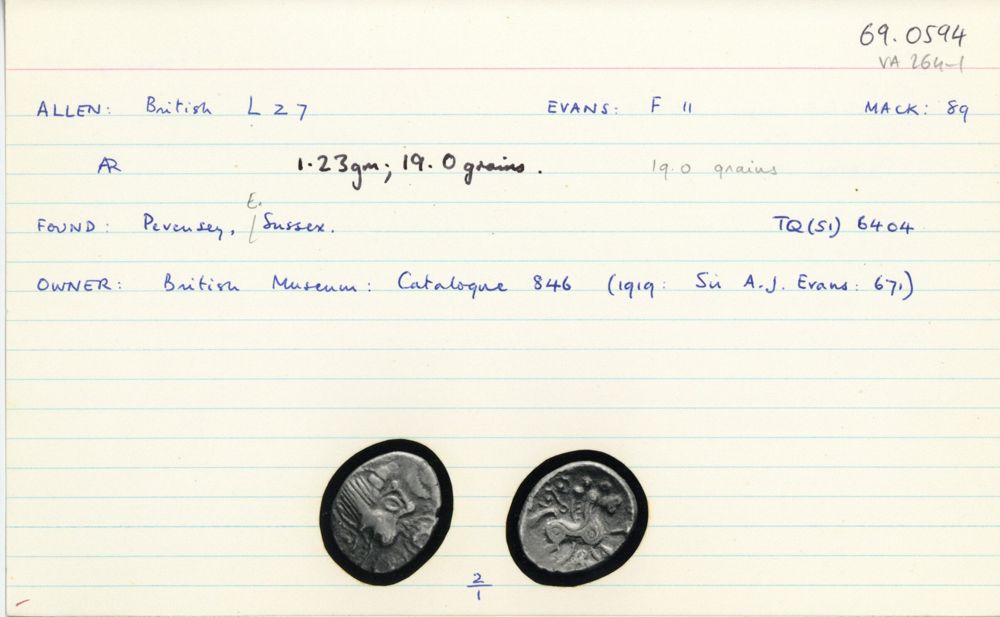 69.0594
VA 264-1
ALLEN: British L 27 EVANS: F 11 MACK: 89
AR 1.23gm; 19.0 grains. 19.0 grains
E.
FOUND: Pevensey, / Sussex. TQ(51) 6404
OWNER: British Museum: Catalogue 846 (1919: Sir A.J. Evans: 671)
2/1